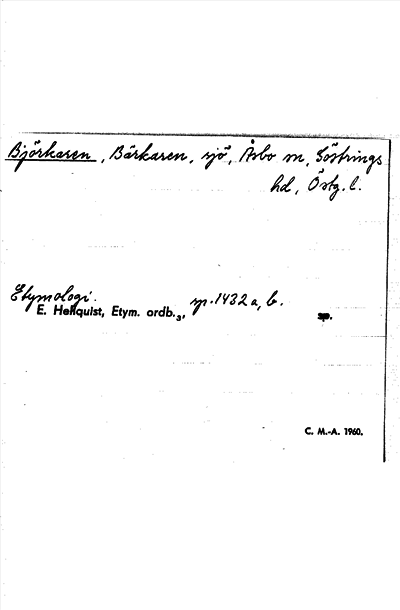 Björkaren, Bärkaren, sjö, Åsbo sn, Göstrings
hd, Östg. l.
Etymologi.
E. Hellquist, Etym. ordb.₃, sp. 1432 a, b.
sp.
C. M.-A. 1960.